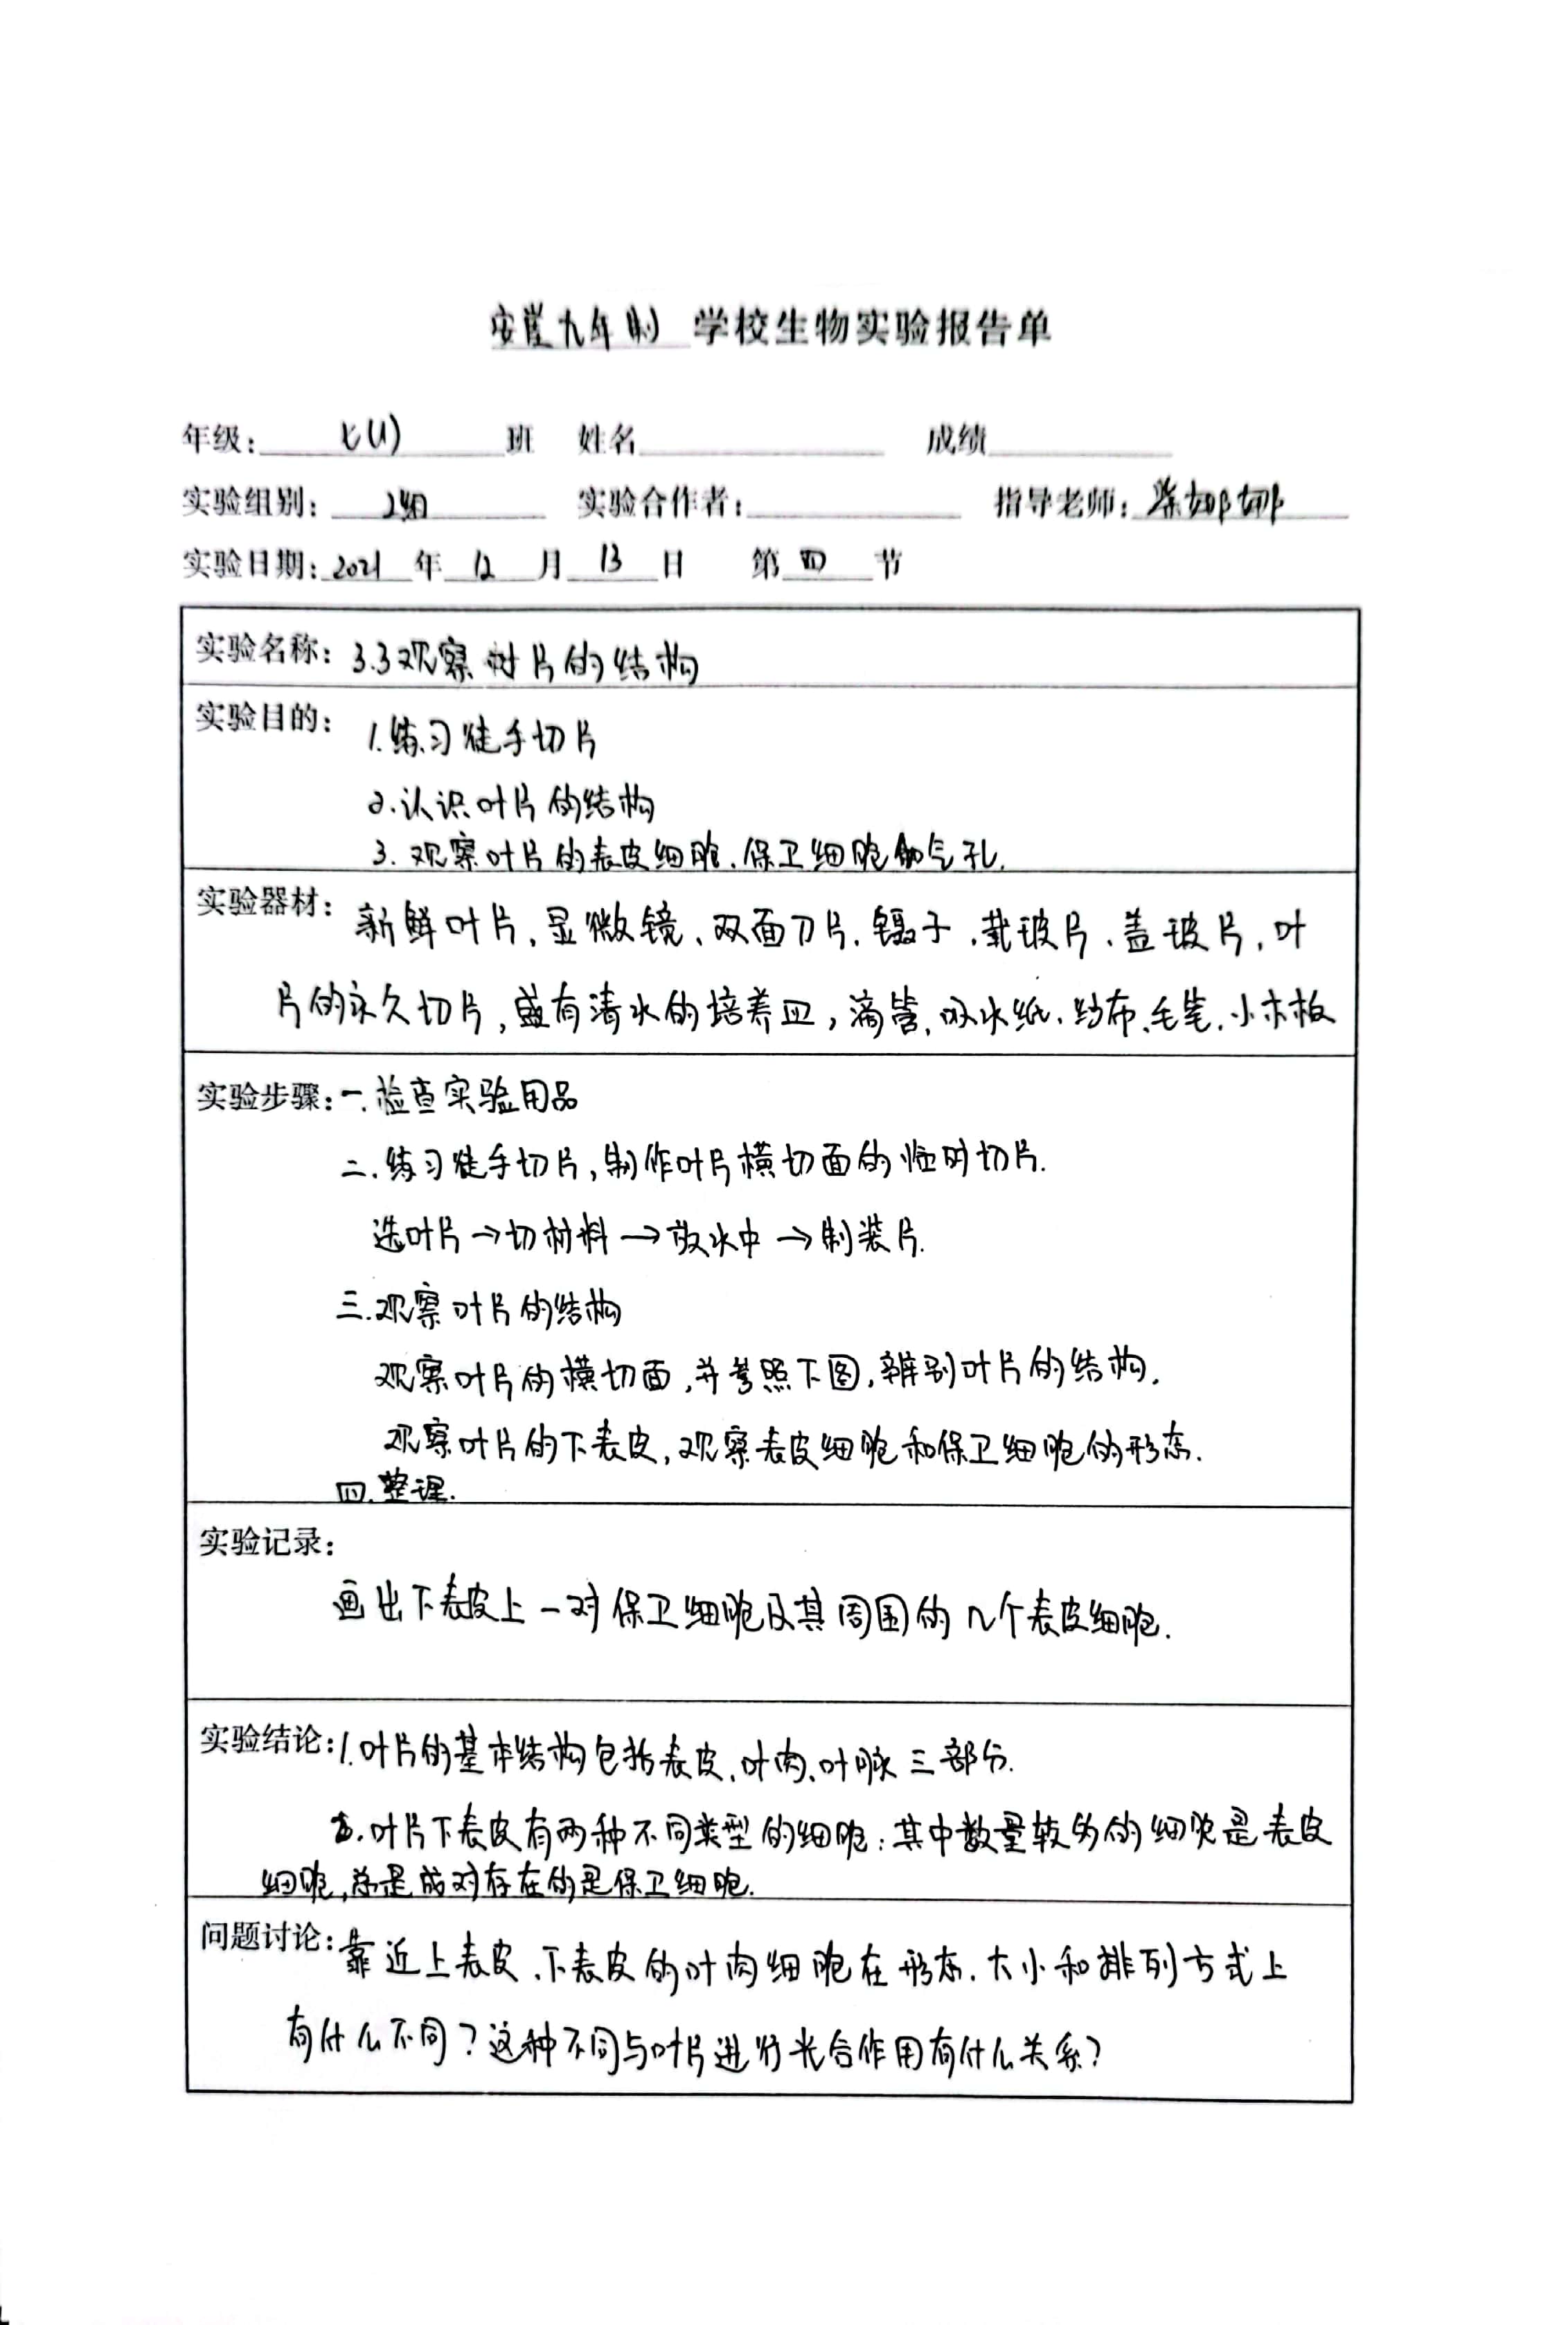 安崖九年制 学校生物实验报告单
年级: 七(1) 班 姓名 成绩
实验组别: 2组 实验合作者: 指导老师: 娜娜
实验日期: 2021 年 12 月 13 日 第 四 节
实验名称: 3.3观察树片的结构
实验目的: 1.练习徒手切片
2.认识叶片的结构
3.观察叶片的表皮细胞、保卫细胞和气孔.
实验器材: 新鲜叶片、显微镜、双面刀片、镊子、载玻片、盖玻片、叶
片的永久切片,盛有清水的培养皿,滴管、吸水纸、纱布、毛笔、小木板
实验步骤: 一.检查实验用品
二.练习徒手切片,制作叶片横切面的临时切片.
选叶片→切材料→放水中→制装片.
三.观察叶片的结构
观察叶片的横切面,并参照下图,辨别叶片的结构.
观察叶片的下表皮,观察表皮细胞和保卫细胞的形态.
四.整理.
实验记录:
画出下表皮上一对保卫细胞及其周围的几个表皮细胞.
实验结论: 1.叶片的基本结构包括表皮、叶肉、叶脉三部分.
2.叶片下表皮有两种不同类型的细胞:其中数量较多的细胞是表皮
细胞,总是成对存在的是保卫细胞.
问题讨论: 靠近上表皮、下表皮的叶肉细胞在形态、大小和排列方式上
有什么不同?这种不同与叶片进行光合作用有什么关系?